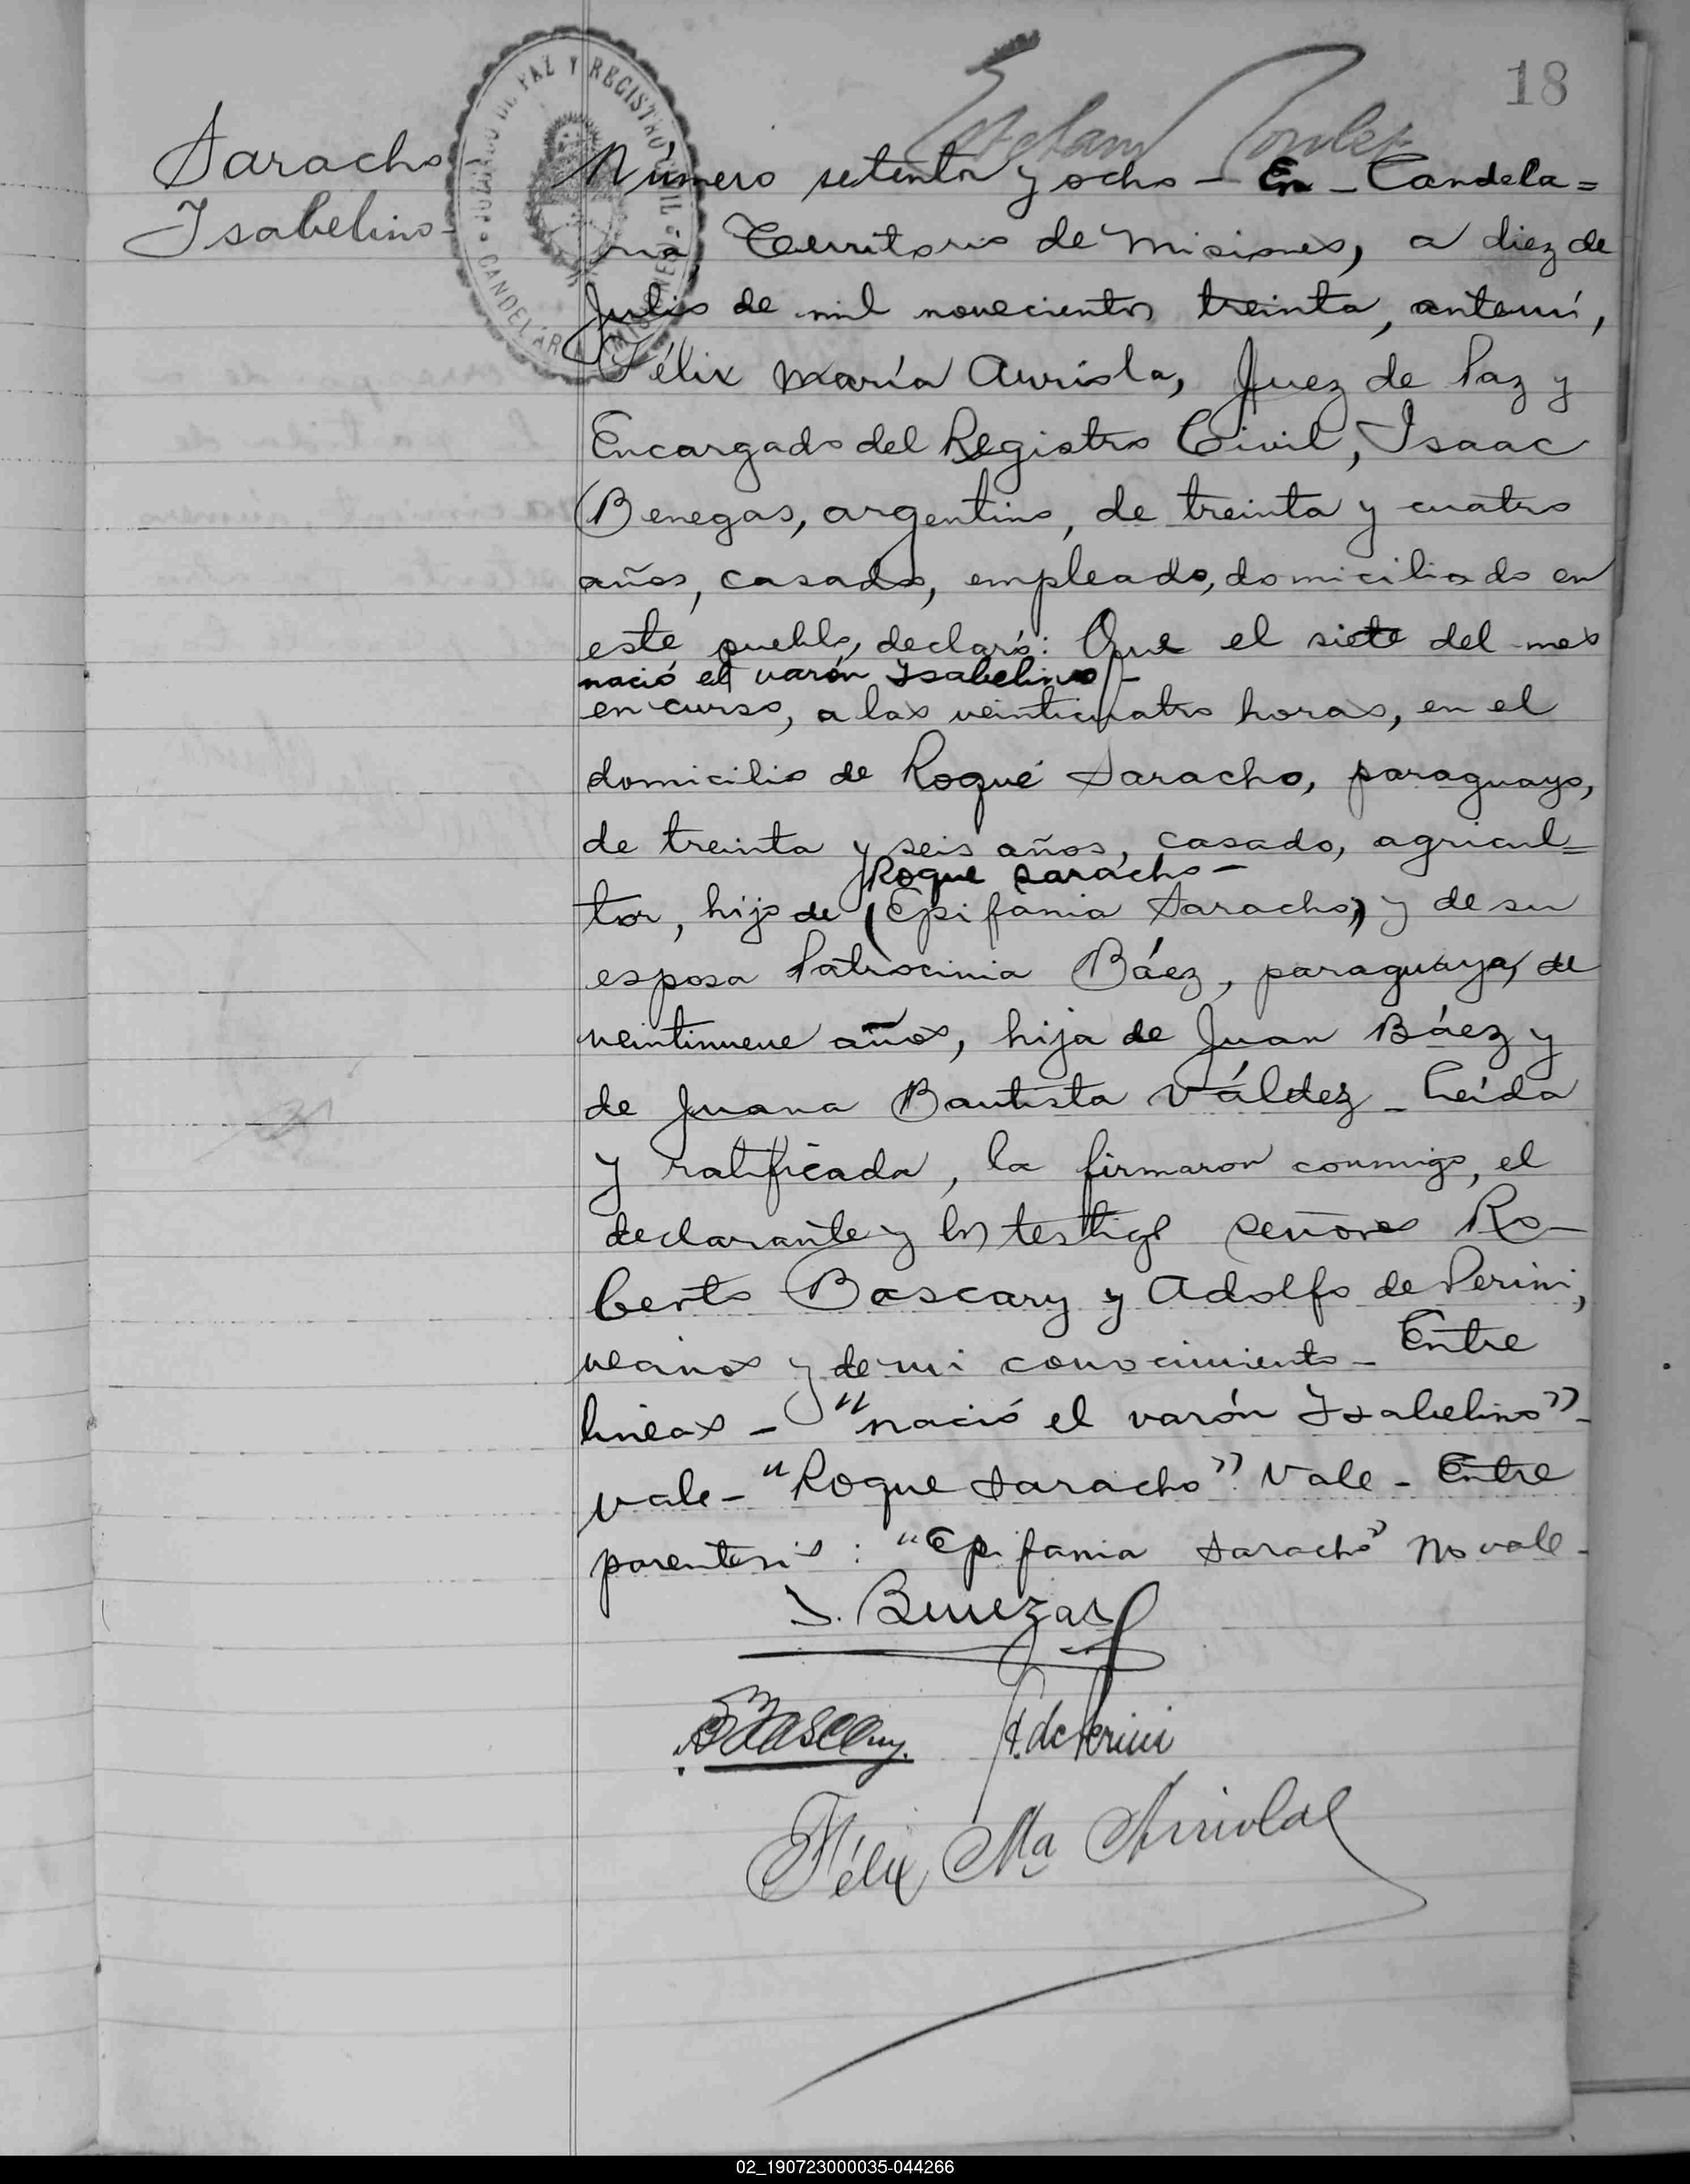 18
Saracho
Isabelino-
JUZGADO DE PAZ Y REGISTRO CIVIL
CANDELARIA MISIONES
Número setenta y ocho - En - Candela=
ria Territorio de Misiones, a diez de
Julio de mil novecientos treinta, ante mí,
Félix María Arriola, Juez de Paz y
Encargado del Registro Civil, Isaac
Benegas, argentino, de treinta y cuatro
años, casado, empleado, domiciliado en
este pueblo, declaró: Que el siete del mes
nació el varón Ysabelino -
en curso, a las veinticuatro horas, en el
domicilio de Roque Saracho, paraguayo,
de treinta y seis años, casado, agricul=
Roque Saracho -
tor, hijo de (Epifania Saracho) y de su
esposa Patrocinia Báez, paraguaya, de
veintinueve años, hija de Juan Báez y
de Juana Bautista Váldez - Leída
y ratificada, la firmaron conmigo, el
declarante y los testigos señores Ro-
berto Bascary y Adolfo de Perini,
vecinos y de mi conocimiento - Entre
lineas - "nació el varón Ysabelino" -
vale - "Roque Saracho" Vale - Entre
parentesis : "Epifania Saracho" No vale -
I. Benegas
RBascary.
A. de Perini
Félix Ma Arriola
02_190723000035-044266